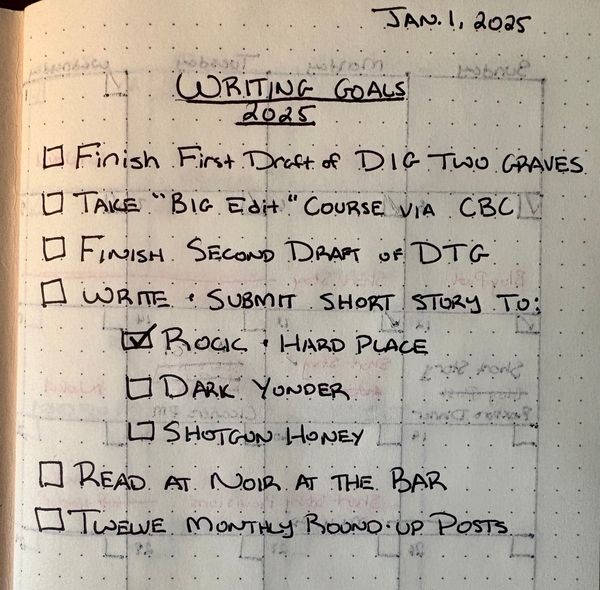 JAN. 1, 2025
WRITING GOALS
2025
Finish First Draft of DIG TWO GRAVES
TAKE "BIG Edit" COURSE VIA CBC
FINISH SECOND DRAFT OF DTG
WRITE + SUBMIT SHORT STORY TO:
ROCK + HARD PLACE
DARK YONDER
SHOTGUN HONEY
READ AT NOIR AT THE BAR
TWELVE MONTHLY ROUND-UP POSTS